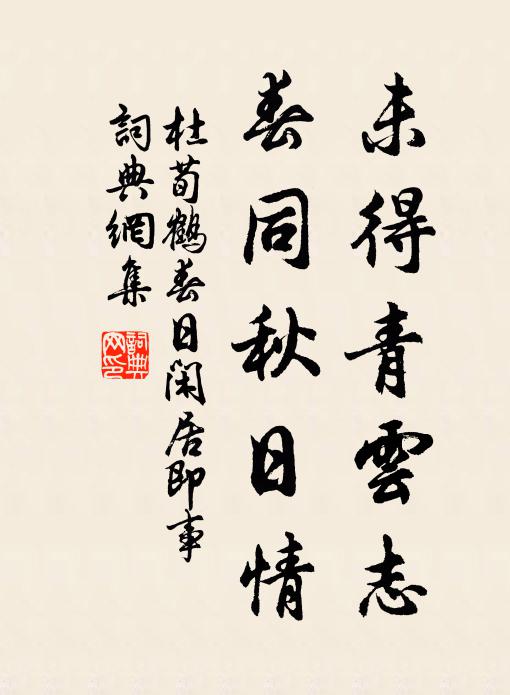 未得青雲志
春同秋日情
杜荀鶴春日閑居即事
詞典網集
詞典
网印